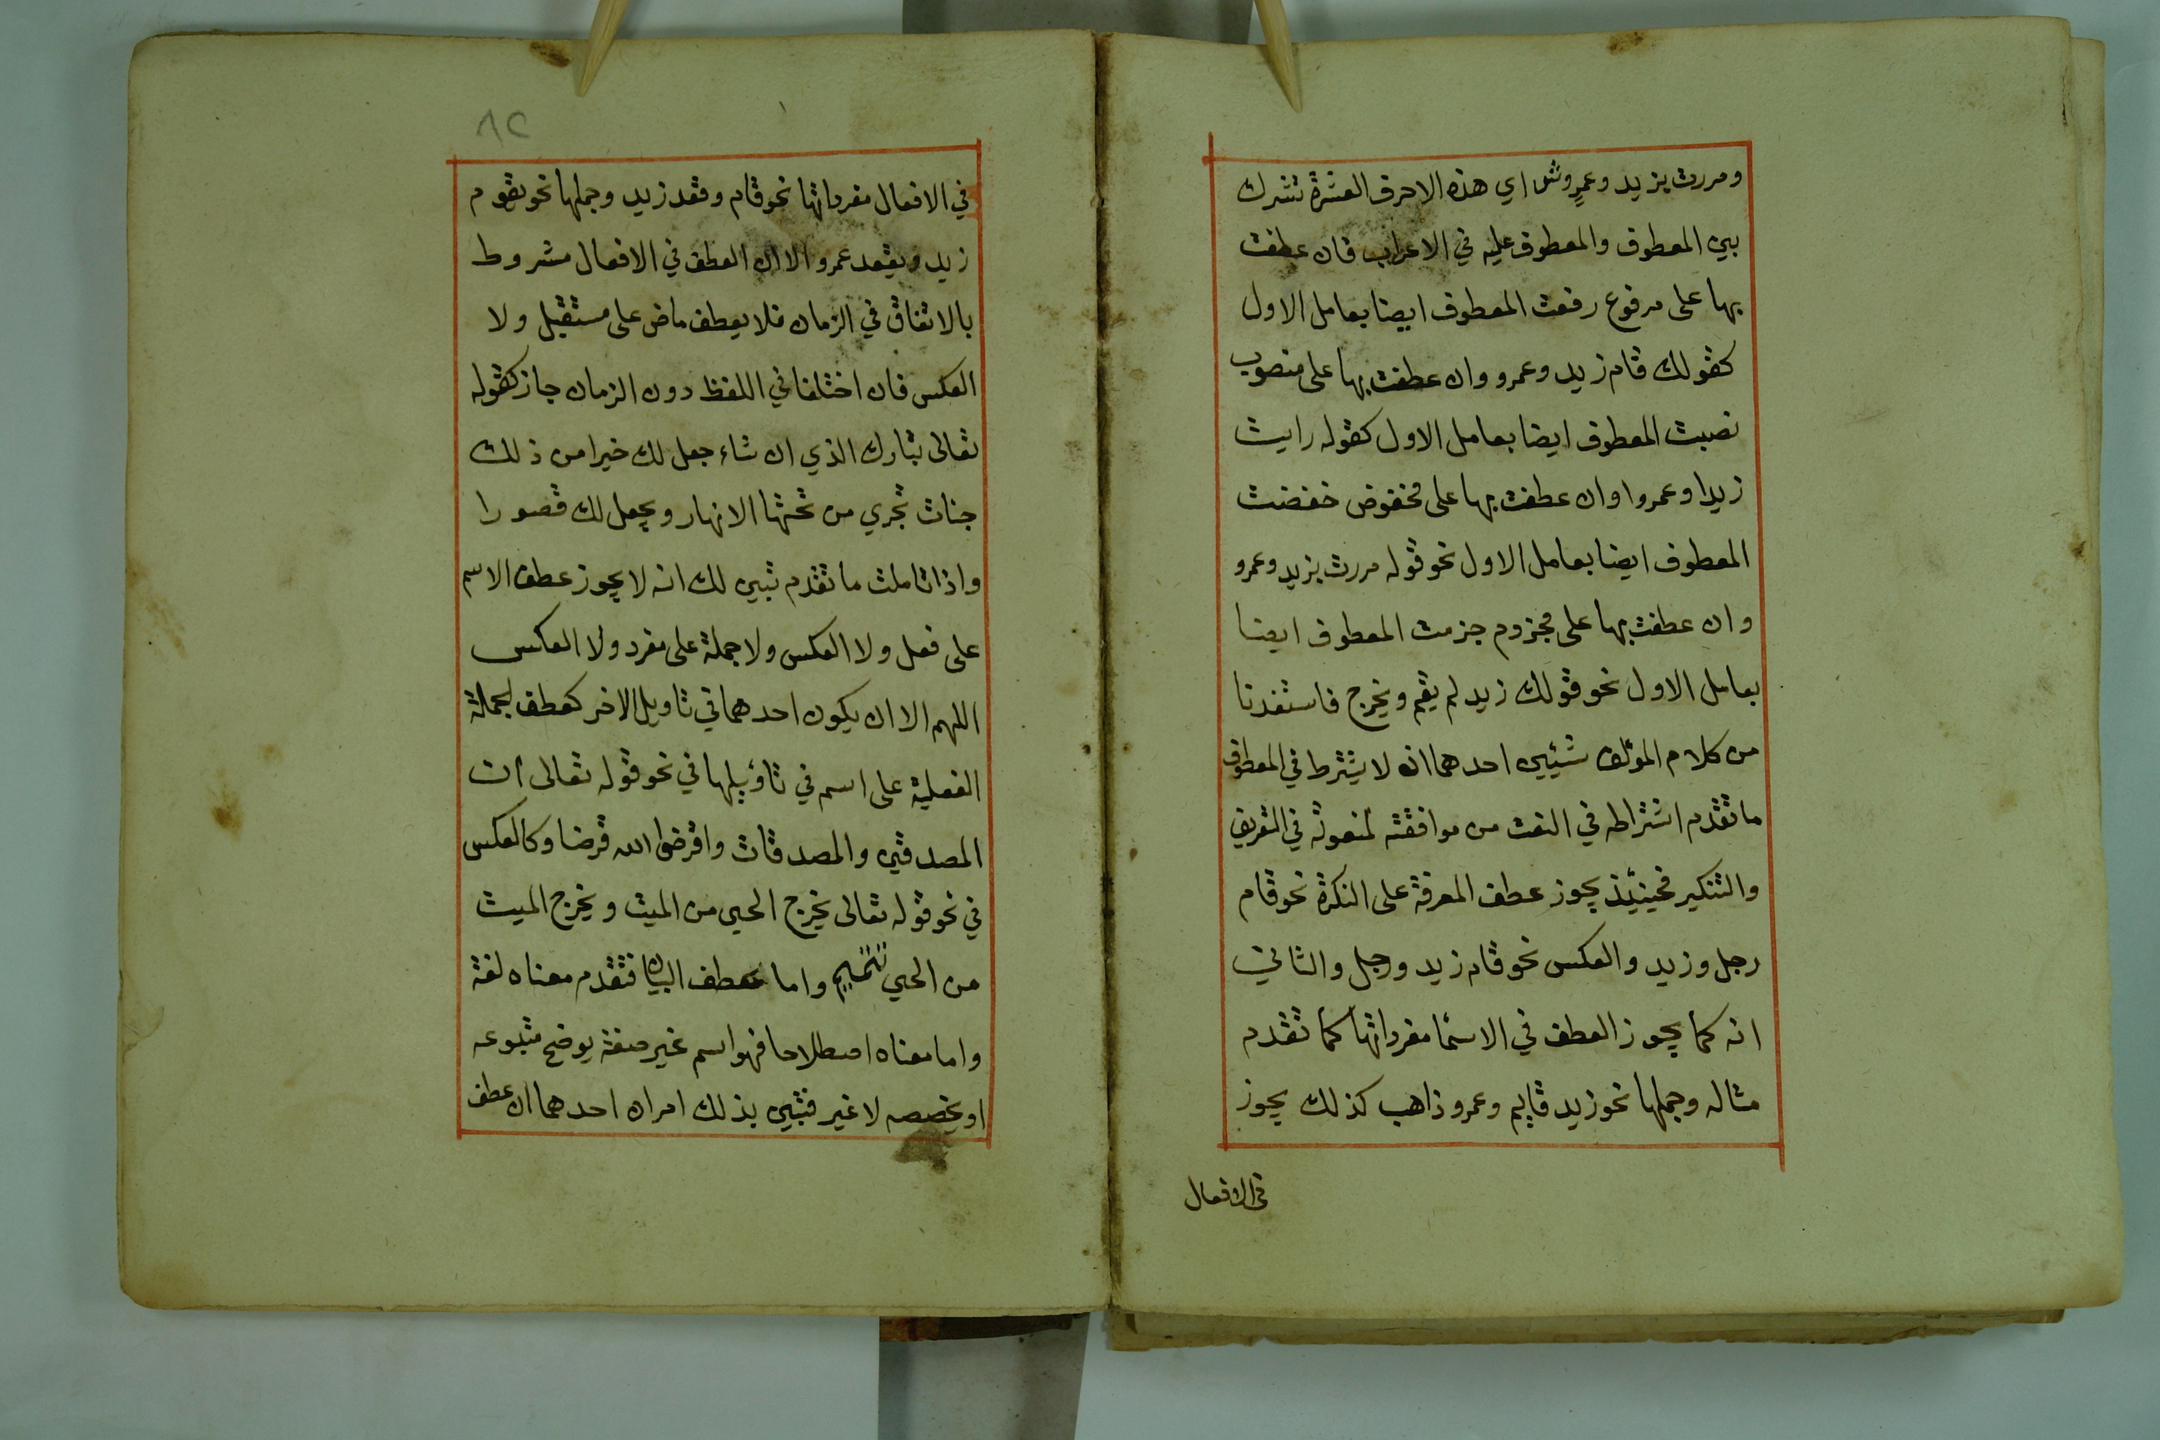 ومررت بزيد وعمرٍو ش اي هذه الاحرف العشرة تشرك
بين المعطوف والمعطوف عليه في الاعراب فان عطفت
بها على مرفوع رفعت المعطوف ايضا بعامل الاول
كقولك قام زيد وعمرو وان عطفت بها على منصوب
نصبت المعطوف ايضا بعامل الاول كقوله رايت
زيدا وعمروا وان عطفت بها على مخفوض خفضت
المعطوف ايضا بعامل الاول نحو قوله مررت بزيد وعمرو
وان عطفت بها على مجزوم جزمت المعطوف ايضا
بعامل الاول نحو قولك زيد لم يقم ويخرج فاستفدنا
من كلام المؤلف شيئين احدهما انه لا يشترط في المعطوف
ما تقدم اشتراطه في النعت من موافقته لمنعوته في التعريف
والتنكير فحينئذ يجوز عطف المعرفة على النكرة نحو قام
رجل وزيد والعكس نحو قام زيد ورجل والثاني
انه كما يجوز العطف في الاسما مفرداتها كما تقدم
مثاله وجملها نحو زيد قايم وعمرو ذاهب كذلك يجوز
في الافعال
٨٢
في الافعال مفرداتها نحو قام وقعد زيد وجملها نحو يقوم
زيد ويقعد عمرو الا ان العطف في الافعال مشروط
بالاتفاق في الزمان فلا يعطف ماض على مستقبل ولا
العكس فان اختلفا في اللفظ دون الزمان جاز كقوله
تعالى تبارك الذي ان شاء جعل لك خيرا من ذلك
جنات تجري من تحتها الانهار ويجعل لك قصورا
واذا تاملت ما تقدم تبين لك انه لا يجوز عطف الاسم
على فعل ولا العكس ولا جملة على مفرد ولا العكس
اللهم الا ان يكون احدهما في تاويل الاخر كعطف الجملة
الفعلية على اسم في تاويلها في نحو قوله تعالى ان
المصدقين والمصدقات واقرضوا الله قرضا وكالعكس
في نحو قوله تعالى يخرج الحي من الميت ويخرج الميت
من الحي تتميم واما عطف البيان فتقدم معناه لغة
واما معناه اصطلاحا فهو اسم غير صفة يوضح متبوعه
او يخصصه لا غير فتبين بذلك امران احدهما ان عطف